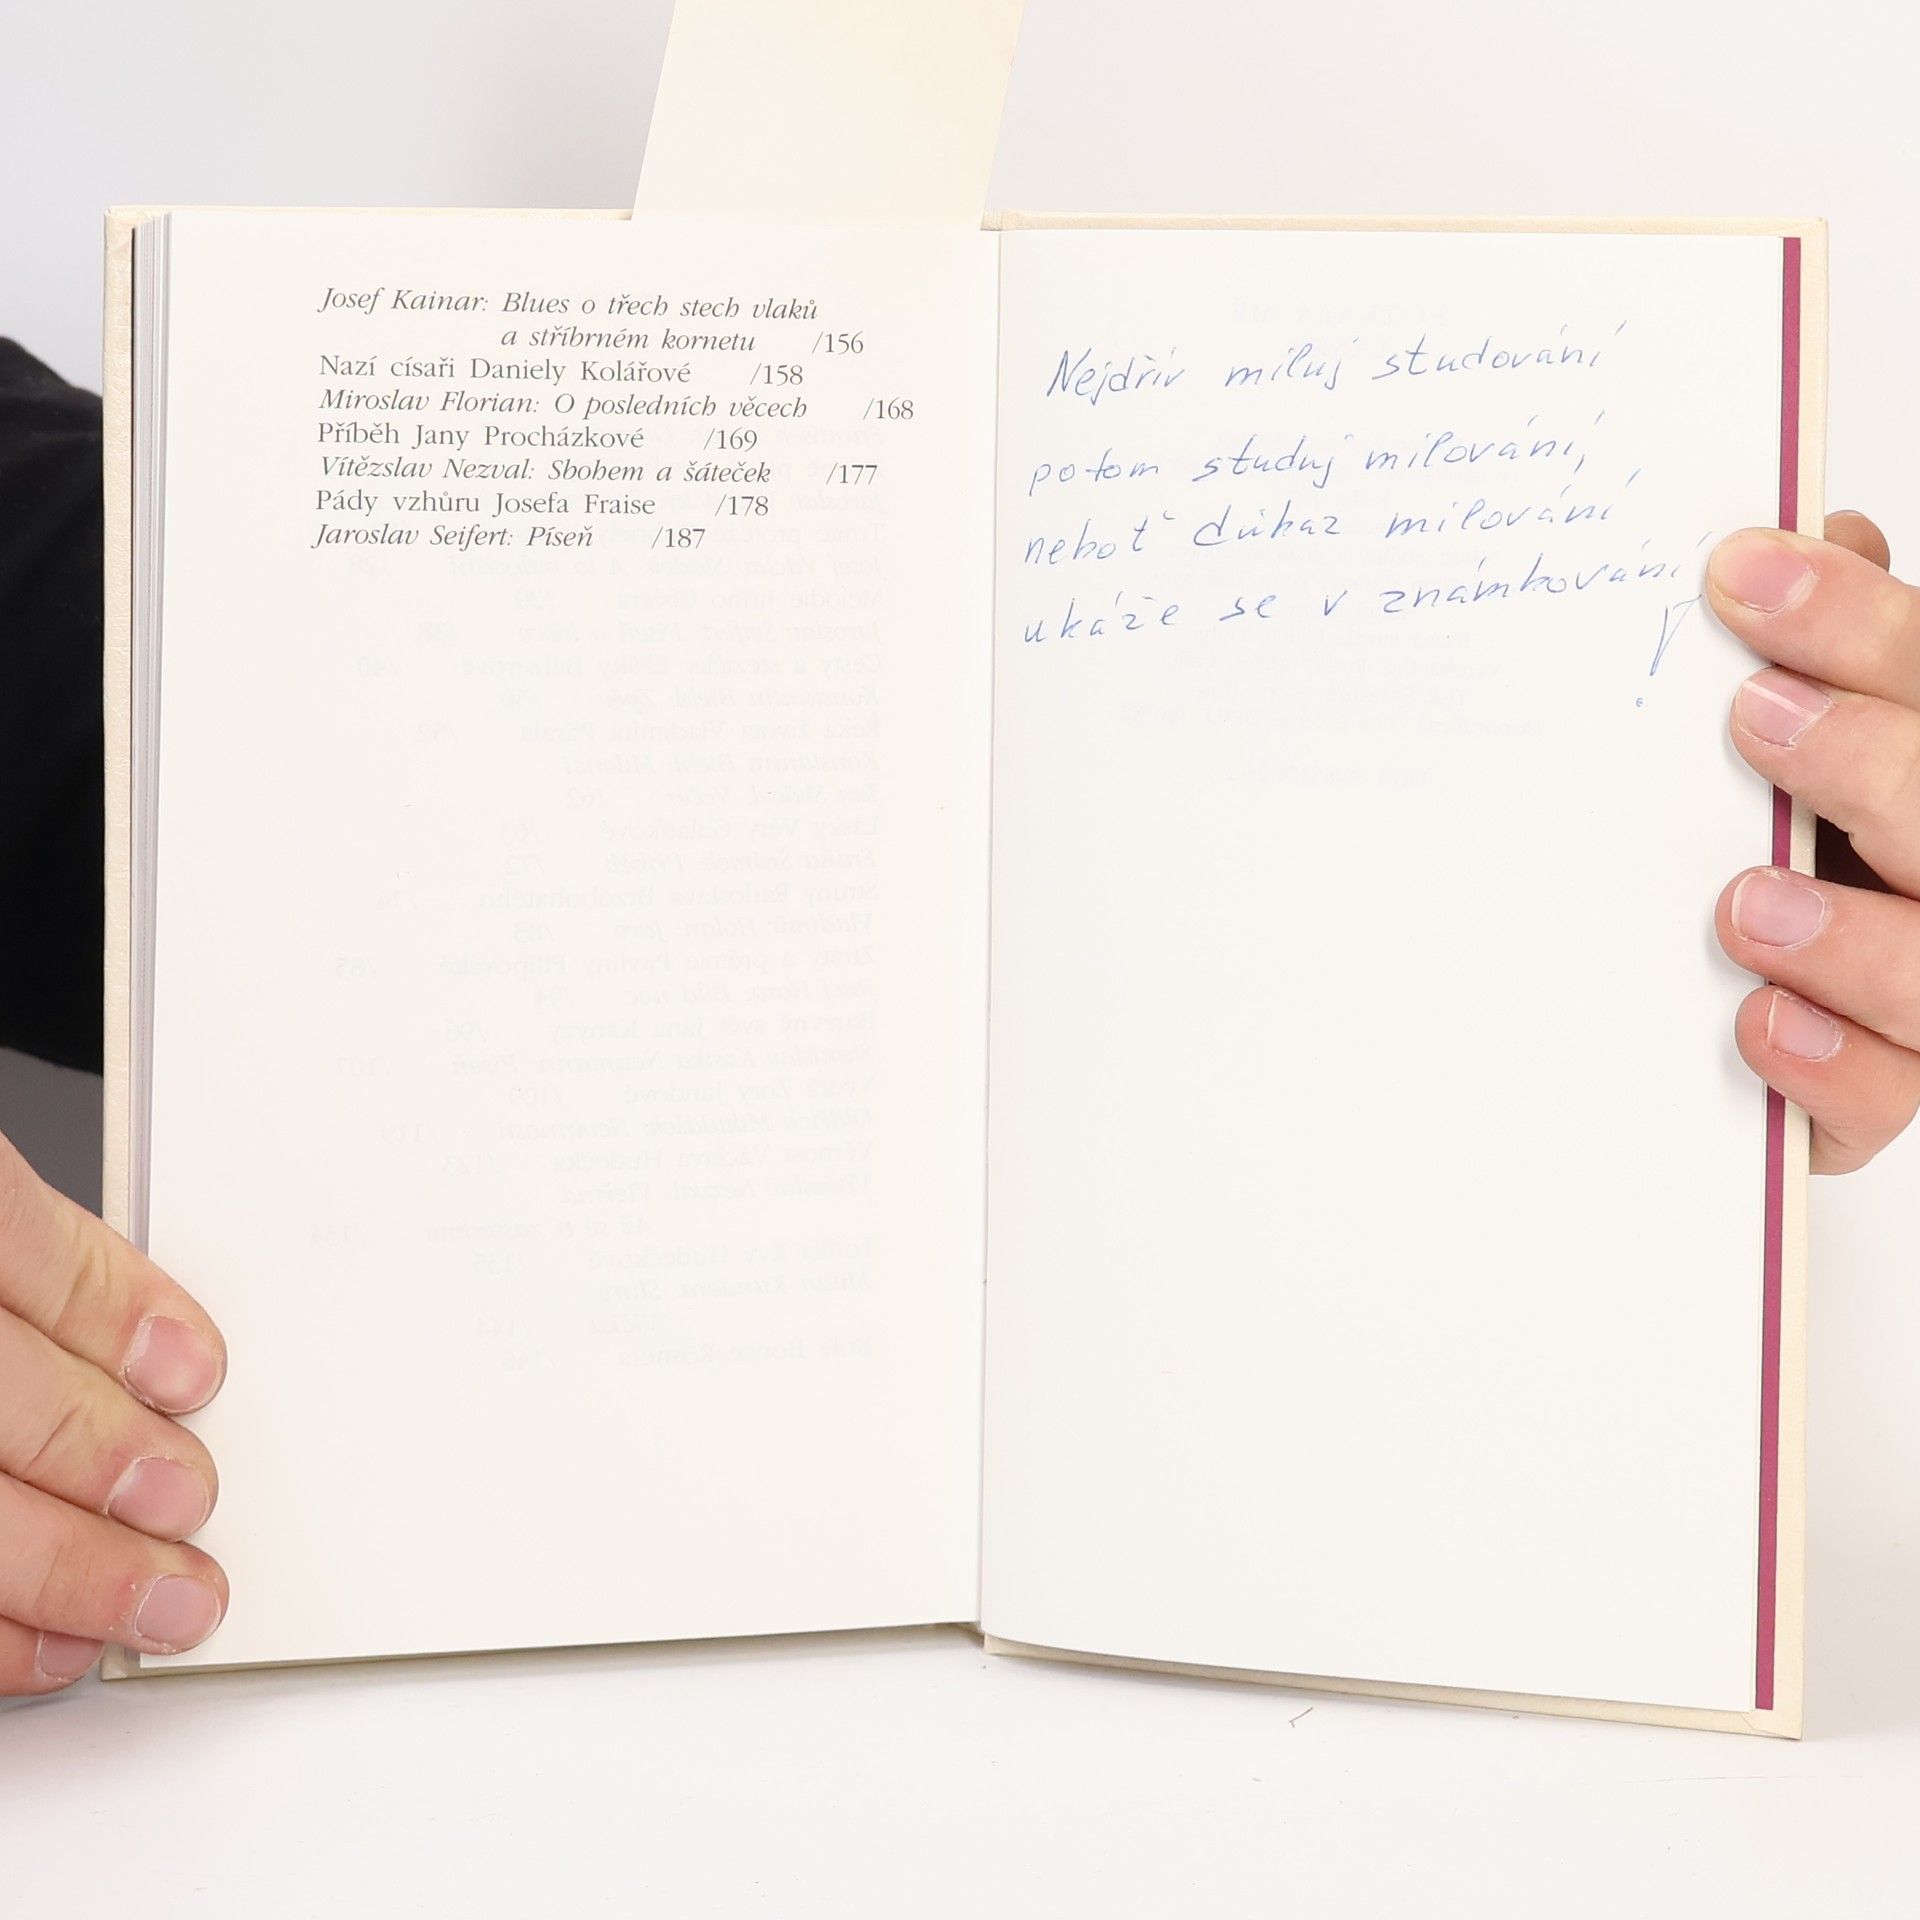 Josef Kainar: Blues o třech stech vlaků
a stříbrném kornetu /156
Nazí císaři Daniely Kolářové /158
Miroslav Florian: O posledních věcech /168
Příběh Jany Procházkové /169
Vítězslav Nezval: Sbohem a šáteček /177
Pády vzhůru Josefa Fraise /178
Jaroslav Seifert: Píseň /187
Nejdřív miluj studování
potom studuj milování,
neboť důkaz milování
ukáže se v známkování!